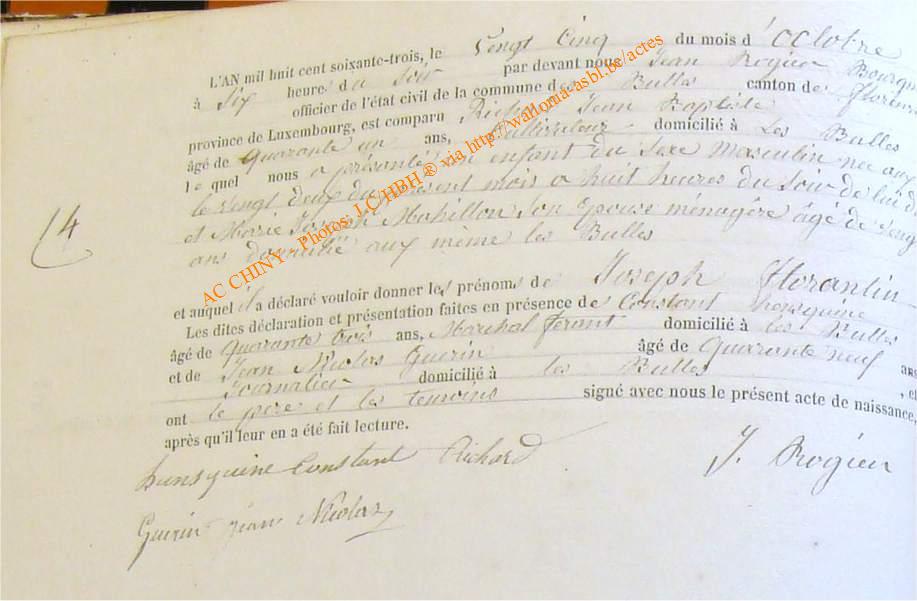 L'AN mil huit cent soixante-trois, le Vengt Cinq du mois d'Octobre
à Six heures du Soir par devant nous Jean Rogier Bourg
officier de l'état civil de la commune des Bulles canton de Floren
province de Luxembourg, est comparu Jean Baptiste
âgé de Quarante un ans, Cultivateur domicilié à Les Bulles
lequel nous a présenté un enfant du Sexe Masculin née aux
le Vengt deux du present mois a huit heures du Soir de lui d
et Marie Joseph Mohillon Son Epouse ménagère âgé de Veng
ans domicilié aux même les Bulles
14
et auquel il a déclaré vouloir donner les prénoms de Joseph Florantin
Les dites déclaration et présentation faites en présence de Constant
âgé de Quarante trois ans, Marichal ferant domicilié à les Bulles
et de Jean Nicolas Guerin âgé de Quarante neuf ans
Journalier domicilié à les Bulles , et
ont le pere et les temoins signé avec nous le présent acte de naissance,
après qu'il leur en a été fait lecture.
Constant Richard J. Rogier
Guerin jean Nicolas
AC CHINY - Photos: J.C HBH ® via http://wallonia-asbl.be/actes